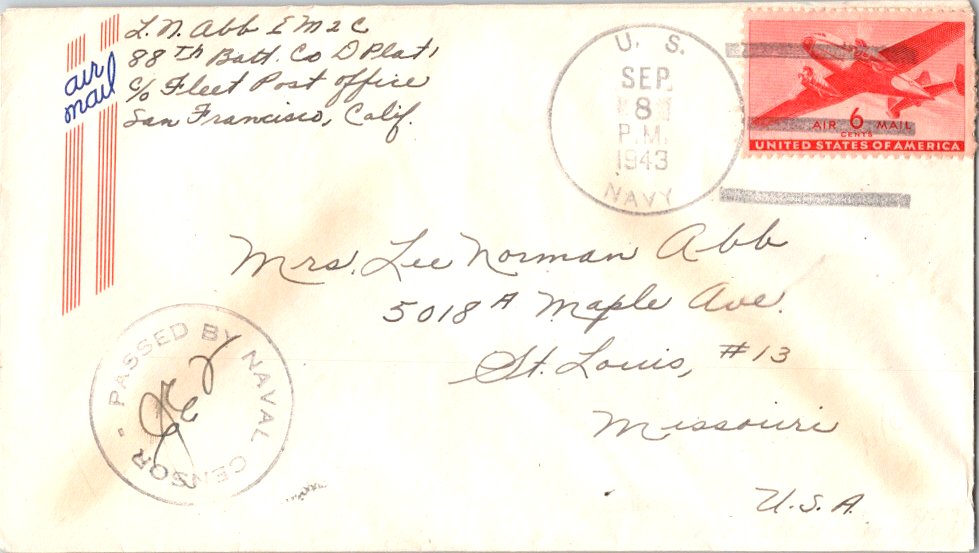 L. N. Abb E M 2 C
88th Batt. Co D Plat 1
c/o Fleet Post Office
San Francisco, Calif.
air
mail
U. S.
SEP
8
P.M.
1943
NAVY
AIR 6 MAIL
CENTS
UNITED STATES OF AMERICA
Mrs. Lee Norman Abb
5018 A Maple Ave.
St. Louis, #13
Missouri
U.S.A.
PASSED BY NAVAL CENSOR